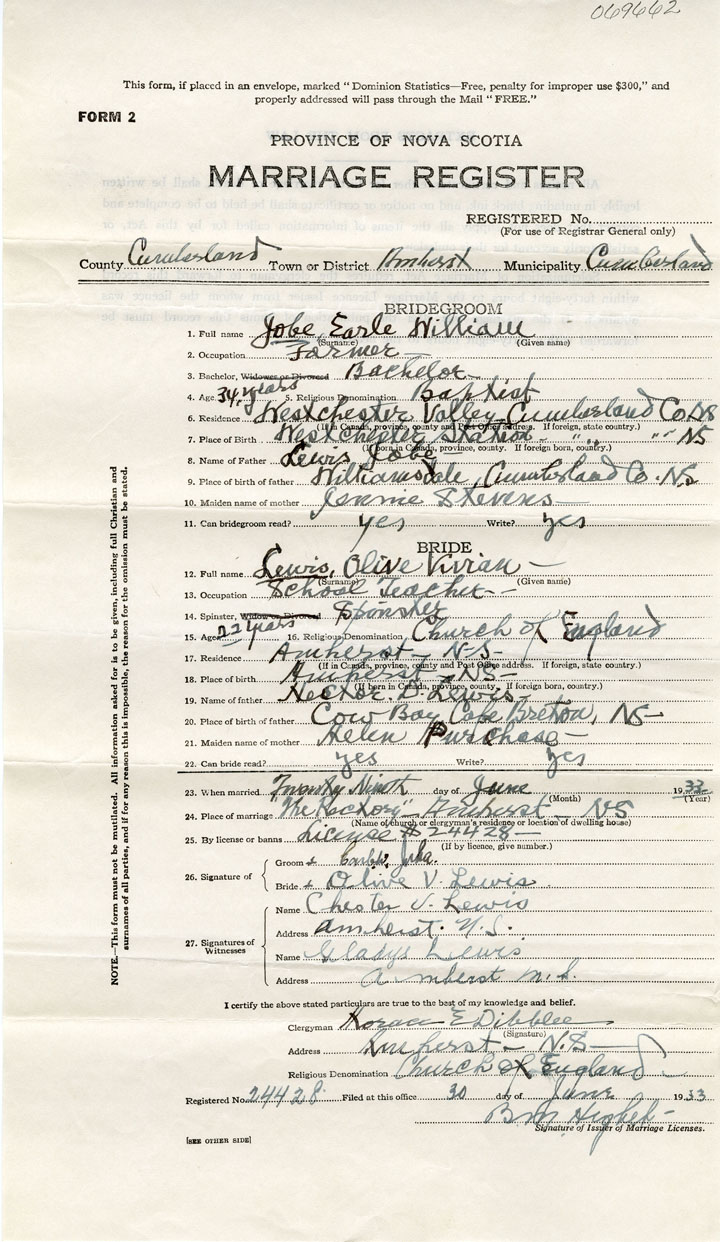 069662
This form, if placed in an envelope, marked "Dominion Statistics—Free, penalty for improper use $300," and
properly addressed will pass through the Mail "FREE."
FORM 2
PROVINCE OF NOVA SCOTIA
MARRIAGE REGISTER
REGISTERED No.
(For use of Registrar General only)
County Cumberland Town or District Amherst Municipality Cumberland
BRIDEGROOM
1. Full name Jobe, Earle William
(Surname) (Given name)
2. Occupation Farmer
3. Bachelor, Widower or Divorced Bachelor
4. Age 34 years 5. Religious Denomination Baptist
6. Residence Westchester Valley, Cumberland Co NS
(If in Canada, province, county and Post Office address. If foreign, state country.)
7. Place of Birth Westchester Station " " " NS
(If born in Canada, province, county. If foreign born, country.)
8. Name of Father Lewis Jobe
9. Place of birth of father Williamsdale, Cumberland Co. NS
10. Maiden name of mother Jennie Stevens
11. Can bridegroom read? yes Write? yes
BRIDE
12. Full name Lewis, Olive Vivian
(Surname) (Given name)
13. Occupation School Teacher
14. Spinster, Widow or Divorced Spinster
15. Age 22 years 16. Religious Denomination Church of England
17. Residence Amherst - N-S-
(If in Canada, province, county and Post Office address. If foreign, state country.)
18. Place of birth Amherst - NS-
(If born in Canada, province, county. If foreign born, country.)
19. Name of father Hector. D. Lewis
20. Place of birth of father Cow Bay, Cape Breton, NS-
21. Maiden name of mother Helen Purchase
22. Can bride read? yes Write? yes
23. When married Twenty Ninth day of June 1933
(Month) (Year)
24. Place of marriage "The Rectory" Amherst - NS
(Name of church or clergyman's residence or location of dwelling house)
25. By license or banns License # 24428
(If by licence, give number.)
26. Signature of
Groom +
Bride + Olive V. Lewis
27. Signatures of Witnesses
Name Chester J. Lewis
Address Amherst. N.S.
Name Gladys Lewis
Address Amherst N.S.
I certify the above stated particulars are true to the best of my knowledge and belief.
Clergyman Horace E Dibblee
(Signature)
Address Amherst - N.S-
Religious Denomination Church of England
Registered No. 24428 Filed at this office 30 day of June 1933
Signature of Issuer of Marriage Licenses.
[SEE OTHER SIDE]
NOTE.—This form must not be mutilated. All information asked for is to be given, including full Christian and
surnames of all parties, and if for any reason this is impossible, the reason for the omission must be stated.